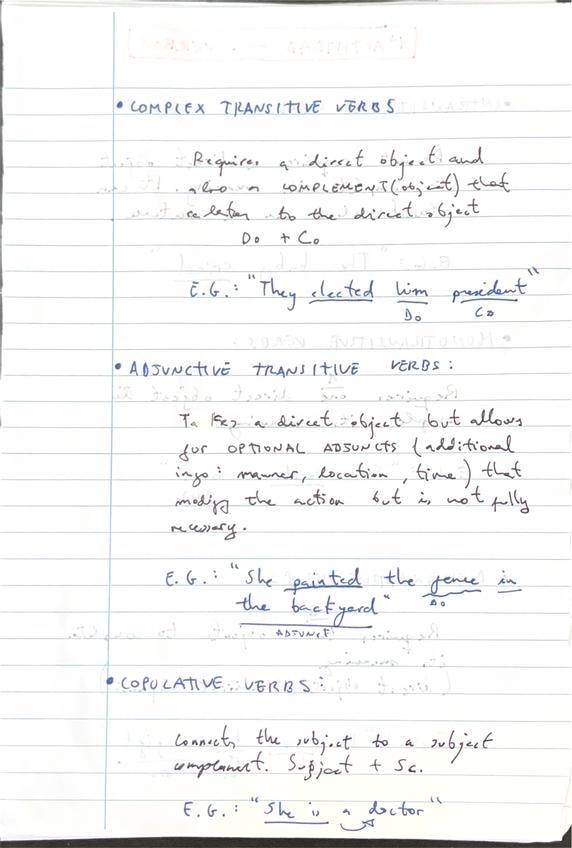 • COMPLEX TRANSITIVE VERBS
Requires a direct object and
also a COMPLEMENT (object) that
relates to the direct object
DO + CO
E.G.: "They elected him president"
DO CO
• ADJUNCTIVE TRANSITIVE VERBS:
Takes a direct object, but allows
for OPTIONAL ADJUNCTS (additional
info: manner, location, time) that
modify the action but is not fully
necessary.
E.G.: "She painted the fence in
DO
the backyard"
ADJUNCT
• COPULATIVE VERBS:
Connects the subject to a subject
complement. Subject + Sc.
E.G.: "She is a doctor"